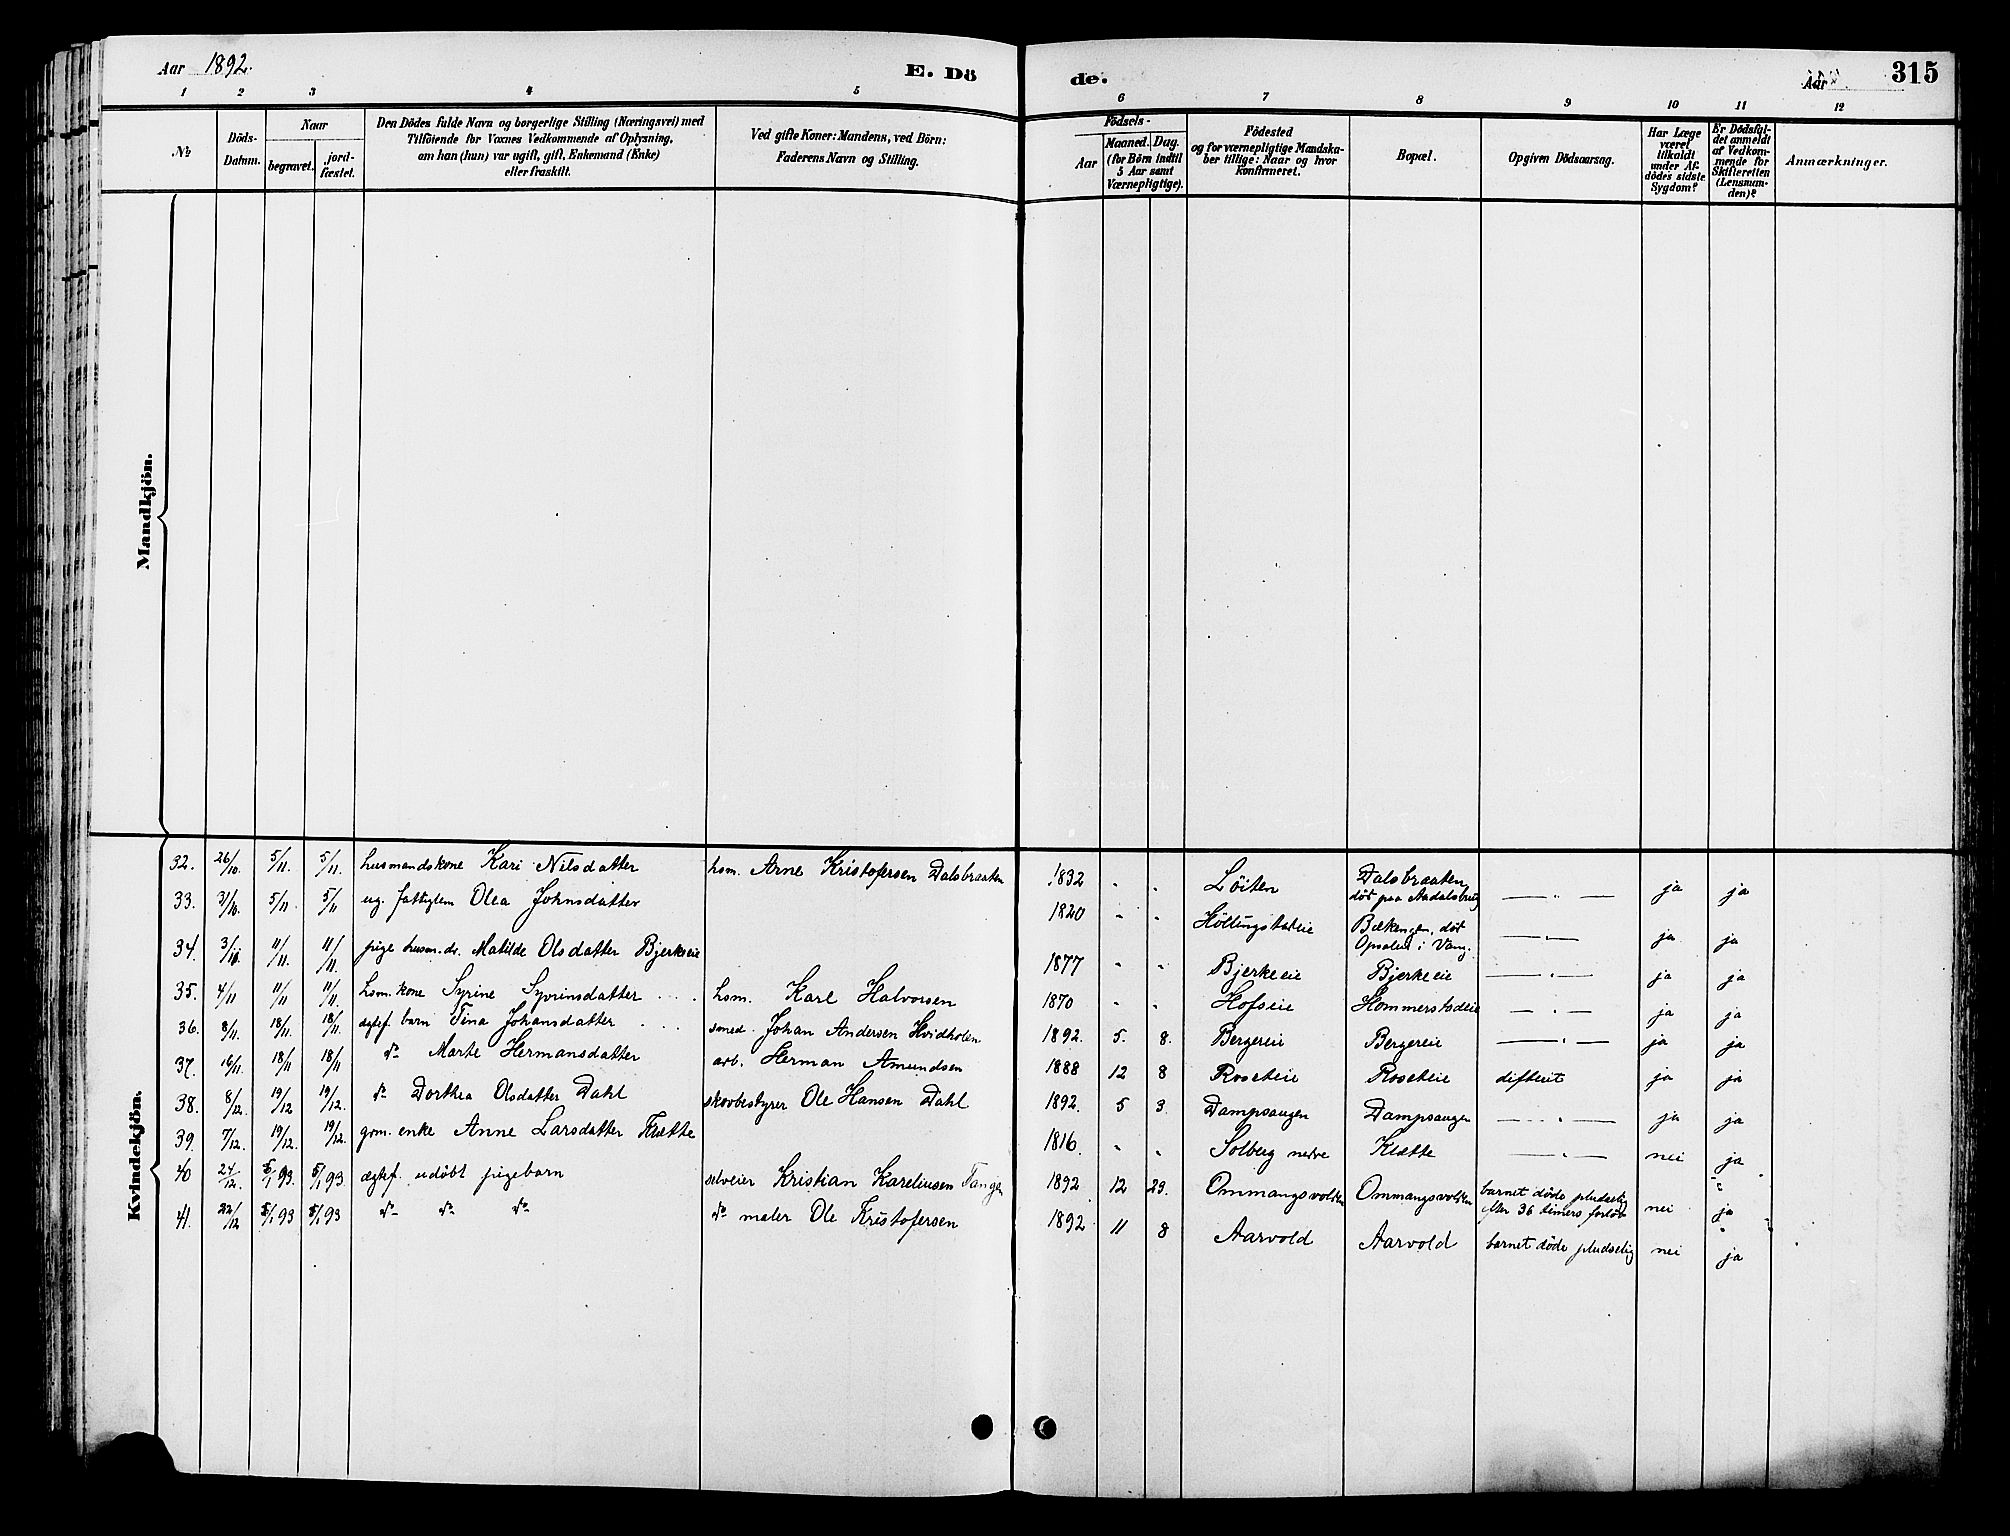 Aar 1892.
E. Dö
de.
Aar
315
1 2 3 4 5 6 7 8 9 10 11 12
No
Döds-Datum.
Naar
begravet.
jord-fæstet.
Den Dödes fulde Navn og borgerlige Stilling (Næringsvei) med
Tilföiende for Voxnes Vedkommende af Oplysning,
om han (hun) var ugift, gift, Enkemand (Enke)
eller fraskilt.
Ved gifte Koner: Mandens, ved Börn:
Faderens Navn og Stilling.
Födsels-
Aar
Maaned. Dag.
(for Börn indtil
5 Aar samt
Værnepligtige).
Födested
og for værnepligtige Mandska-
ber tillige: Naar og hvor
konfirmeret.
Bopæl.
Opgiven Dödsaarsag.
Har Læge
været
tilkaldt
under Af-
dödes sidste
Sygdom?
Er Dödsfal-
det anmeldt
af Vedkom-
mende for
Skifteretten
(Lensman-
den)?
Anmærkninger.
Mandkjön.
Kvindekjön.
32. 26/10. 5/11. 5/11. husmandskone Kari Nilsdatter hsm. Arne Kristofersen Dalsbraaten 1832 " " Löiten Dalsbraaten död paa Aadalsbrug — " — ja ja
33. 31/10. 5/11. 5/11 ug. fattiglem Olea Johnsdatter 1820 " " Höllingstadeie Bækengen, död Opsalen i Vang. — " — ja ja
34. 3/11. 11/11. 11/11. pige husm.dr. Matilde Olsdatter Bjerkeeie 1877 " " Bjerkeeie Bjerkeeie — " — ja ja
35. 4/11 11/11 11/11. hsm. kone Syrine Syvrinsdatter hsm. Karl Halvorsen 1870 " " Hofseie Hommerstadeie — " — ja ja
36. 8/11. 18/11. 18/11. ægtef. barn Tina Johansdatter smed. Johan Andersen Hvidholen 1892. 5. 8. Bergereie Bergereie — " — ja ja
37. 16/11. 18/11 18/11 do Marte Hermansdatter arb. Herman Amundsen 1888 12 8 Roseteie Roseteie difterit ja ja
38. 8/12. 19/12 19/12. do Dorthea Olsdatter Dahl skovbestyrer Ole Hansen Dahl 1892. 5 3. Dampsaugen Dampsaugen — " — ja ja
39. 7/12. 19/12. 19/12. gom. enke Anne Larsdatter Klætte 1816. " " Solberg nedre Klætte — " — nei ja
40 24/12. 5/1 93. 5/1 93. ægtef. udöbt pigebarn selveier Kristian Kareliusen Tangen 1892 12 23. Ommangsvolden Ommangsvolden barnet døde pludselig efter 36 timers forløb nei ja
41. 22/12 5/1 93 5/1 93 do do do do maler Ole Kristofersen 1892 11 8 Aarvold Aarvold barnet døde pludselig nei ja